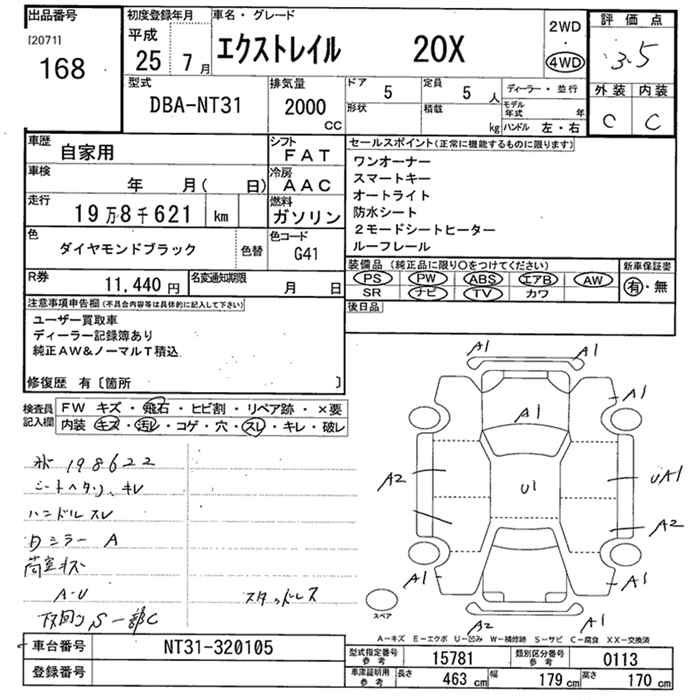 出品番号
[2071]
168
初度登録年月
平成
25年 7月
車名・グレード
エクストレイル 20X
2WD
・
4WD
評価点
3.5
外装 内装
C C
型式
DBA-NT31
排気量
2000
CC
ドア 5
定員 5 人
形状
積載 kg
ディーラー・並行
モデル年式 年
ハンドル 左・右
車歴
自家用
シフト
FAT
車検
年 月( 日)
冷房
AAC
走行
19万8千621 km
燃料
ガソリン
色
ダイヤモンドブラック
色替
色コード
G41
R券
11,440円
名変通知期限
月 日
セールスポイント(正常に機能するものに限ります)
ワンオーナー
スマートキー
オートライト
防水シート
2モードシートヒーター
ルーフレール
装備品 (純正品に限り○をつけてください)
PS PW ABS エアB AW
SR ナビ TV カワ
新車保証書
有・無
後日品
注意事項申告欄(不具合内容等は具体的に記入して下さい)
ユーザー買取車
ディーラー記録簿あり
純正AW&ノーマルT積込
修復歴 有〔箇所 〕
検査員記入欄
FW キズ・飛石・ヒビ割・リペア跡・×要
内装 キズ・汚レ・コゲ・穴・スレ・キレ・破レ
198622
シートヘタリ、キレ
ハンドルスレ
ミラー A
荷室キズ
A-U
スタッドレス
下回り S 一部C
A1
A1
A1
A1
A2
U1
UA1
A2
A1
A1
A2
A1
スペア
A-キズ E-エクボ U-凹み W-補修跡 S-サビ C-腐食 XX-交換済
車台番号
NT31-320105
登録番号
型式指定番号 参考
15781
類別区分番号 参考
0113
車庫証明用 参考
長さ 463 cm
幅 179 cm
高さ 170 cm